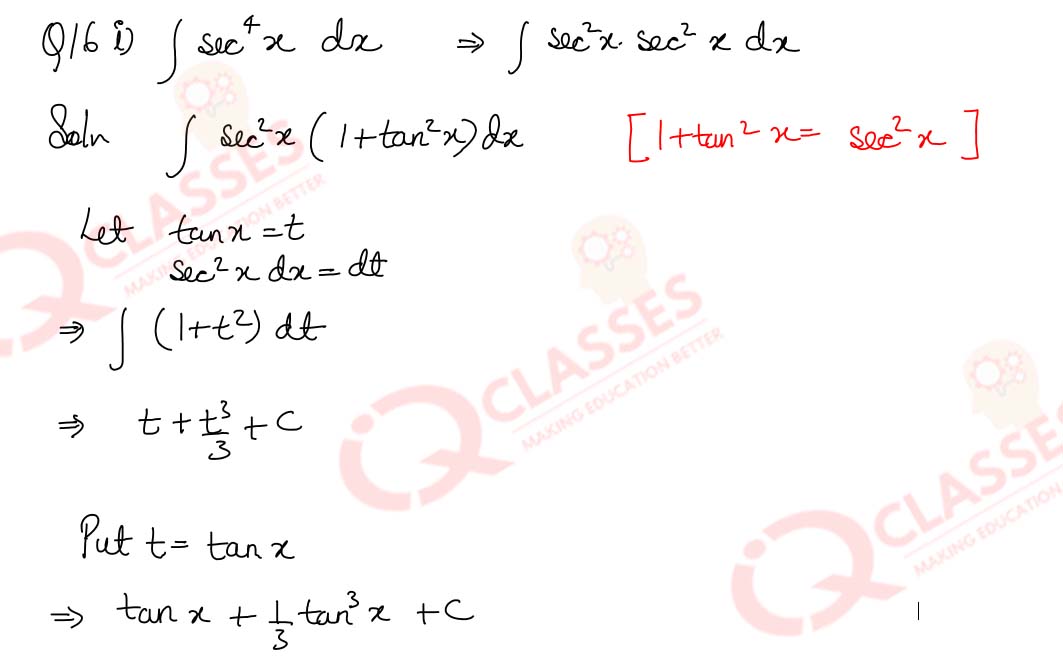 Q16 i) ∫ sec⁴x dx ⇒ ∫ sec²x · sec²x dx
Soln ∫ sec²x (1+tan²x) dx [1+tan²x = sec²x]
Let tanx = t
sec²x dx = dt
⇒ ∫ (1+t²) dt
⇒ t + t³/3 + C
Put t = tan x
⇒ tan x + 1/3 tan³x + C
IQ CLASSES
MAKING EDUCATION BETTER
IQ CLASSES
MAKING EDUCATION BETTER
IQ CLASSES
MAKING EDUCATION BETTER